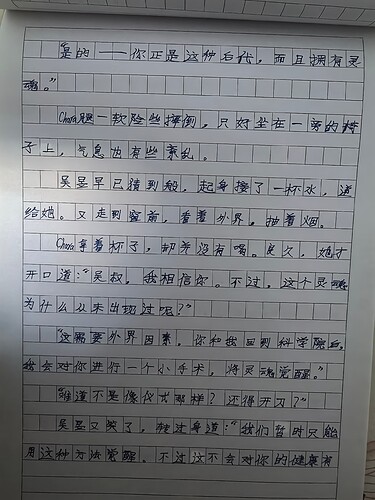 “是的——你正是这种后代，而且拥有灵
魂。”
Chara腿一软险些摔倒，只好坐在一旁的椅
子上，气息也有些紊乱。
吴昱早已猜到般，起身接了一杯水，递
给她。又走到窗前，看着外界，抽着烟。
Chara拿着杯子，却并没有喝。良久，她才
开口道：“吴叔，我相信你。不过，这个灵魂
为什么从未出现过呢？”
“这需要外界因素。你和我回到科学院后，
我会对你进行一个小手术，将灵魂觉醒。”
“难道不是像仪式那样？还得开刀？”
吴昱又笑了，转过身道：“我们暂时只能
用这种方法觉醒。不过这不会对你的健康有